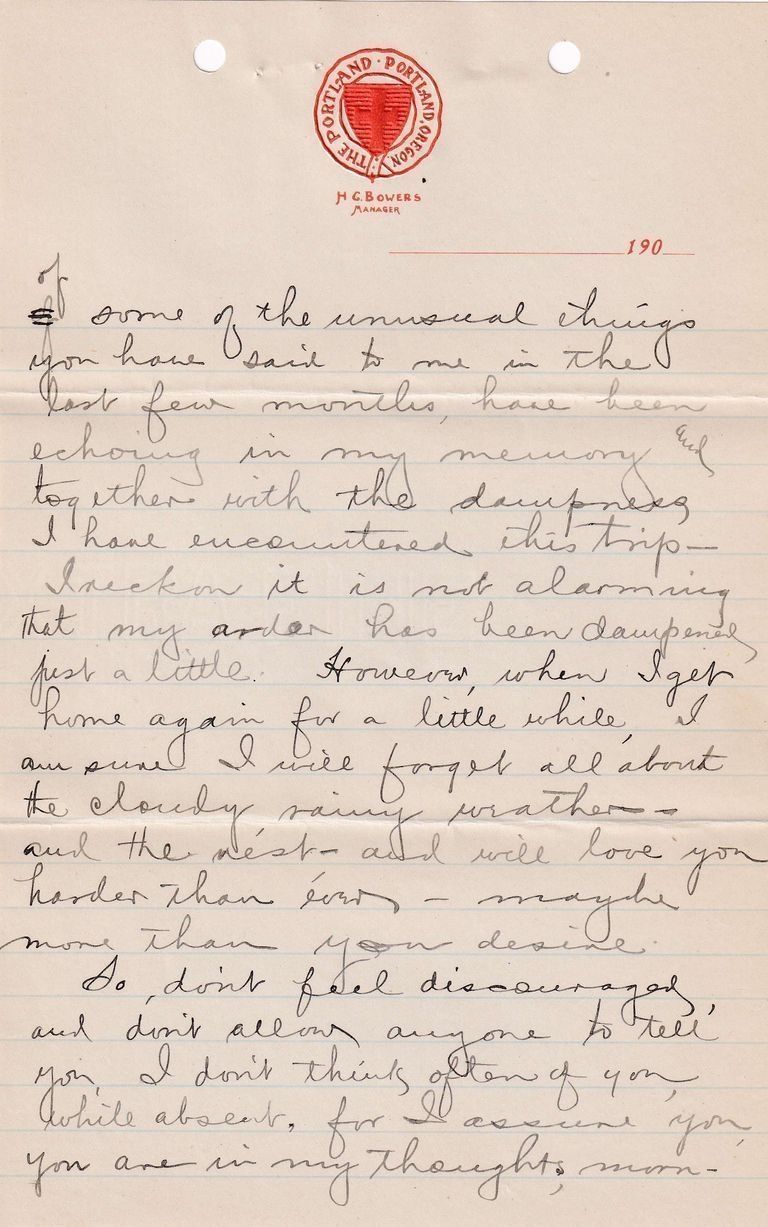 THE PORTLAND · PORTLAND, OREGON.
H C. BOWERS
MANAGER
190
of
some of the unusual things
you have said to me in the
last few months, have been
echoing in my memory and
together with the dampness
I have encountered this trip—
I reckon it is not alarming
that my ardor has been dampened
just a little. However, when I get
home again for a little while, I
am sure I will forget all about
the cloudy rainy weather—
and the rest— and will love you
harder than ever, — maybe
more than you desire.
So, don't feel discouraged,
and don't allow anyone to tell
you, I don't think often of you,
while absent, for I assure you,
you are in my thoughts, morn-